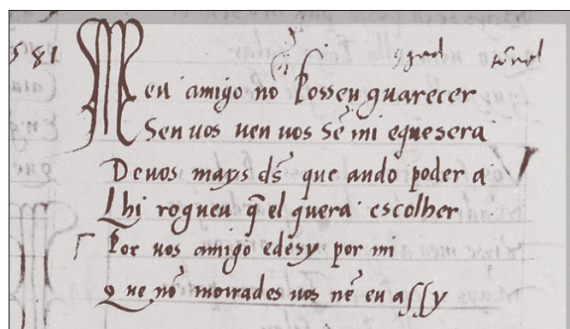 581
Meu amigo nõ Possen guarecer
Sen uos nen uos sẽ mi e que sera
De uos mays ds̃ que ando poder a
Lhi rogueu q̃ el quera escolher
Por uos amigo edesy por mi
Que nõ moirades uos nẽ eu assy